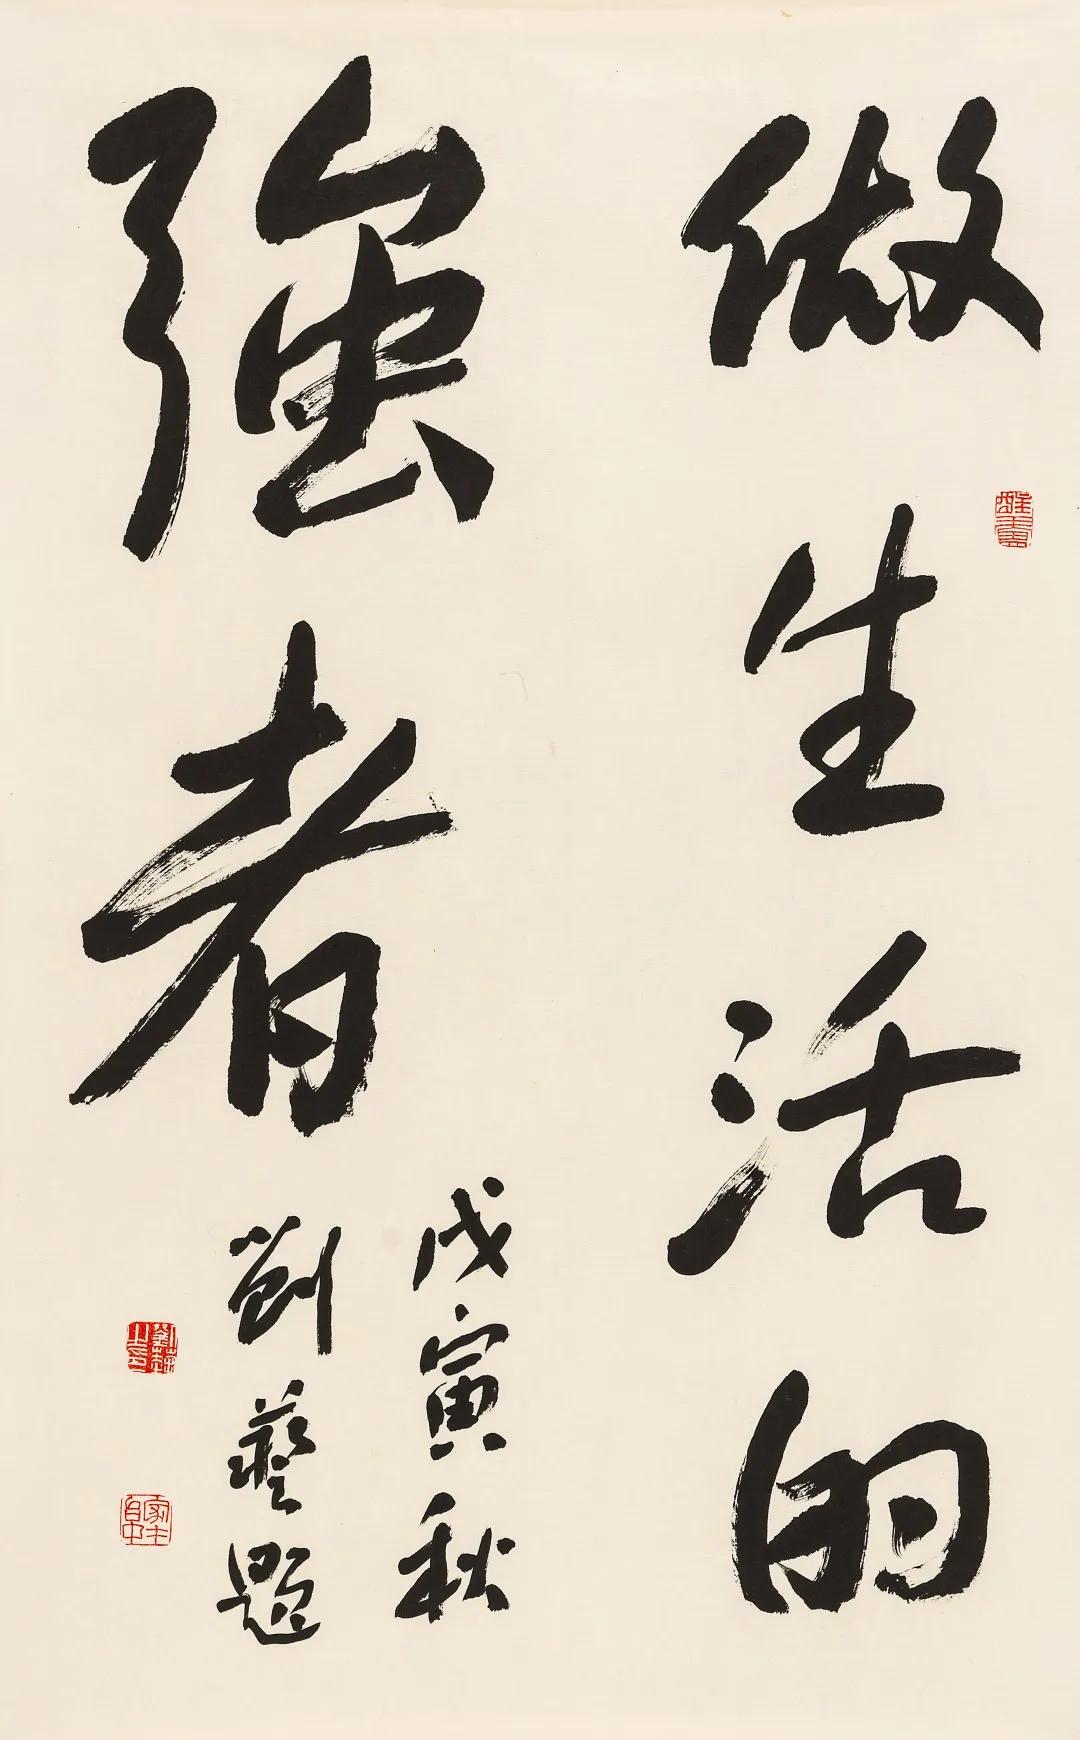 做生活的
強者
戊寅秋
劉藝題